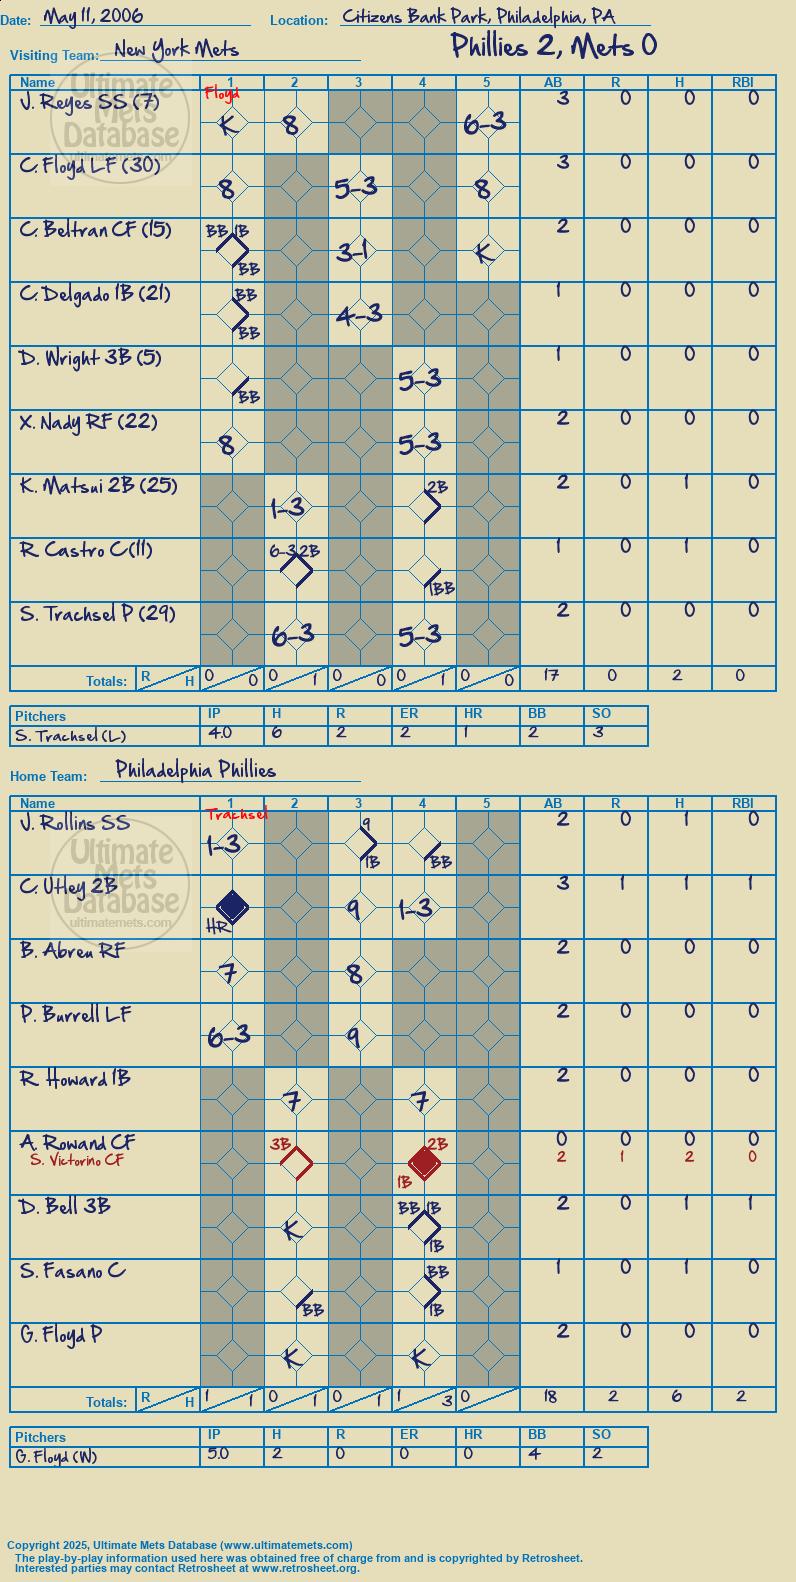 Date: May 11, 2006 Location: Citizens Bank Park, Philadelphia, PA
Visiting Team: New York Mets Phillies 2, Mets 0
Name 1 2 3 4 5 AB R H RBI
Floyd
J. Reyes SS (7) K 8 6-3 3 0 0 0
C. Floyd LF (30) 8 5-3 8 3 0 0 0
C. Beltran CF (15) BB 1B BB 3-1 K 2 0 0 0
C. Delgado 1B (21) BB BB 4-3 1 0 0 0
D. Wright 3B (5) BB 5-3 1 0 0 0
X. Nady RF (22) 8 5-3 2 0 0 0
K. Matsui 2B (25) 1-3 2B 2 0 1 0
R. Castro C (11) 6-3 2B IBB 1 0 1 0
S. Trachsel P (29) 6-3 5-3 2 0 0 0
Totals: R H 0 0 0 1 0 0 0 1 0 0 17 0 2 0
Pitchers IP H R ER HR BB SO
S. Trachsel (L) 4.0 6 2 2 1 2 3
Home Team: Philadelphia Phillies
Name 1 2 3 4 5 AB R H RBI
Trachsel
J. Rollins SS 1-3 9 1B BB 2 0 1 0
C. Utley 2B HR 9 1-3 3 1 1 1
B. Abreu RF 7 8 2 0 0 0
P. Burrell LF 6-3 9 2 0 0 0
R. Howard 1B 7 7 2 0 0 0
A. Rowand CF 0 0 0 0
S. Victorino CF 3B 2B 1B 2 1 2 0
D. Bell 3B K BB 1B 1B 2 0 1 1
S. Fasano C BB BB 1B 1 0 1 0
G. Floyd P K K 2 0 0 0
Totals: R H 1 1 0 1 0 1 1 3 0 18 2 6 2
Pitchers IP H R ER HR BB SO
G. Floyd (W) 5.0 2 0 0 0 4 2
Ultimate
Mets
Database
ultimatemets.com
Ultimate
Mets
Database
ultimatemets.com
Copyright 2025, Ultimate Mets Database (www.ultimatemets.com)
The play-by-play information used here was obtained free of charge from and is copyrighted by Retrosheet.
Interested parties may contact Retrosheet at www.retrosheet.org.